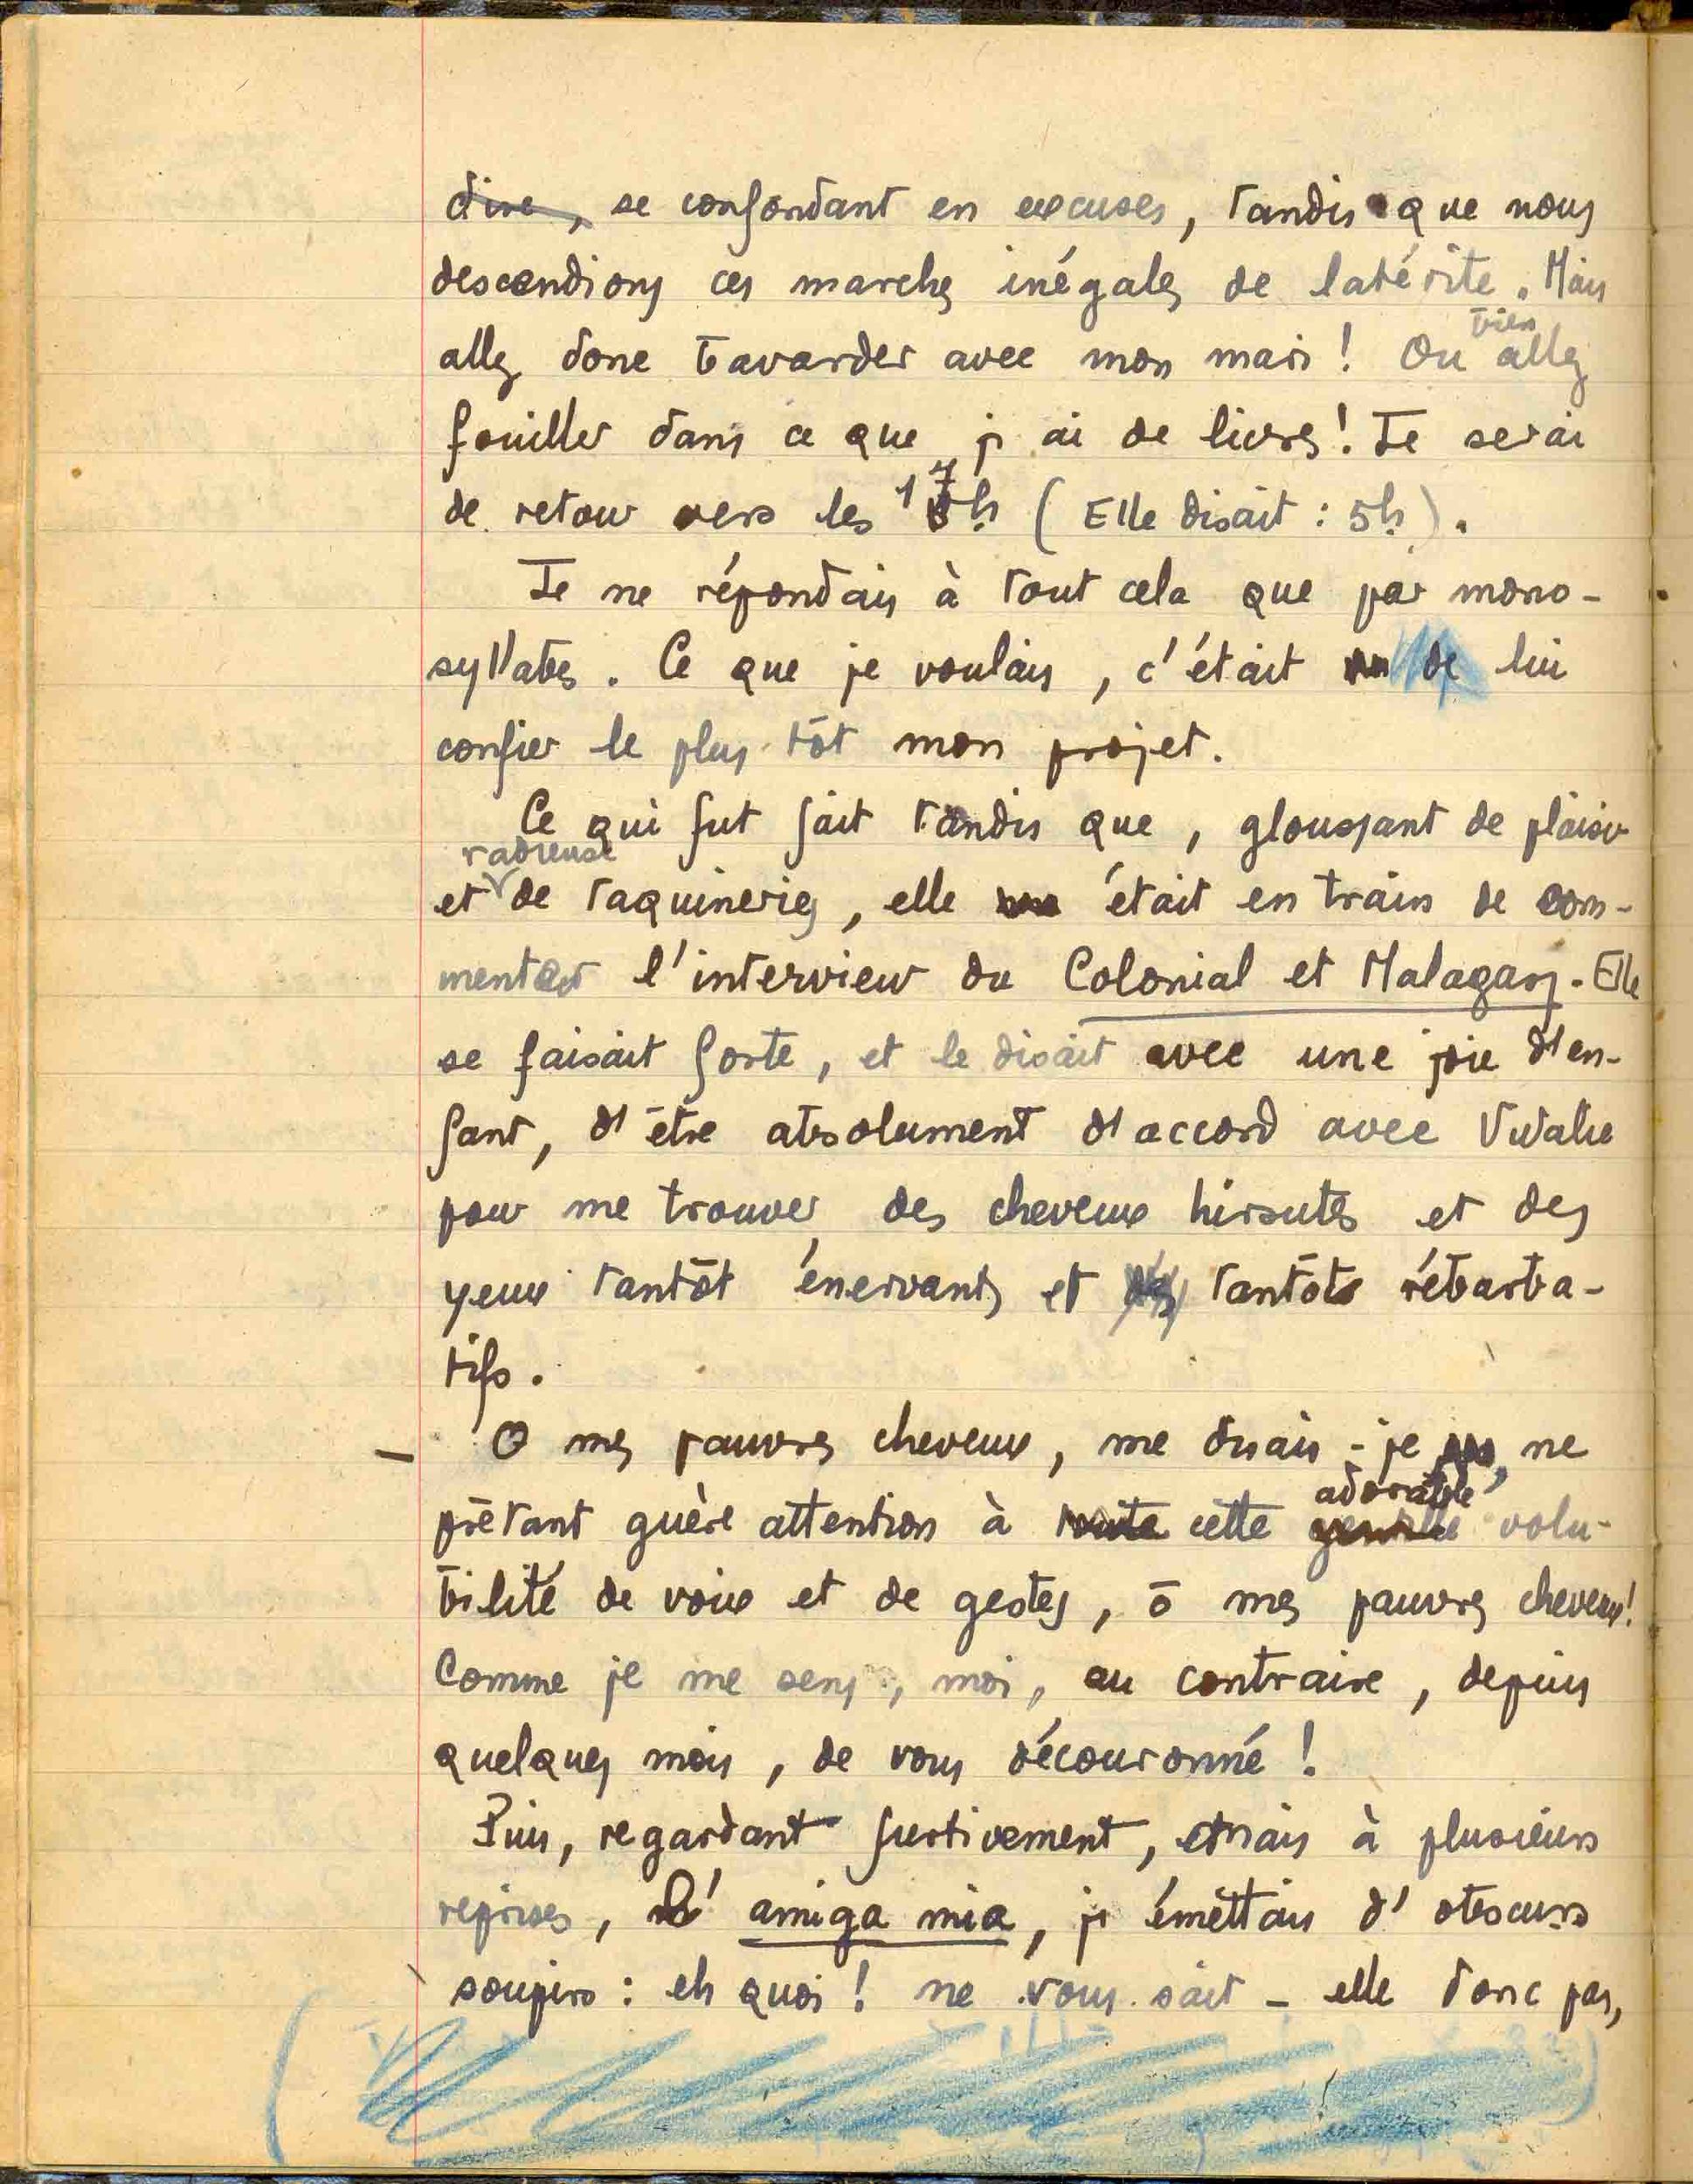 dire, se confondant en excuses, tandis que nous
descendions ces marches inégales de latérite. Mais
allez donc bavarder avec mon mari ! Ou bien allez
fouiller dans ce que j'ai de livres ! Je serai
de retour vers les 17h (Elle disait : 5h).
Je ne répondais à tout cela que par mono-
syllabes. Ce que je voulais, c'était de lui
confier le plus tôt mon projet.
Ce qui fut fait tandis que, gloussant de plaisir
et radieuse de taquineries, elle était en train de com-
menter l'interview du Colonial et Malagasy. Elle
se faisait forte, et le disait avec une joie d'en-
fant, d'être absolument d'accord avec Vidalie
pour me trouver des cheveux hirsutes et des
yeux tantôt énervants et tantôt rébarba-
tifs.
— O mes pauvres cheveux, me disais-je, ne
prêtant guère attention à toute cette gentille adorable volu-
bilité de voix et de gestes, ô mes pauvres cheveux !
Comme je me sens, moi, au contraire, depuis
quelques mois, de vous découronné !
Puis, regardant furtivement, mais à plusieurs
reprises, l'amiga mia, j'émettais d'obscurs
soupirs : eh quoi ! ne vous sait-elle donc pas,